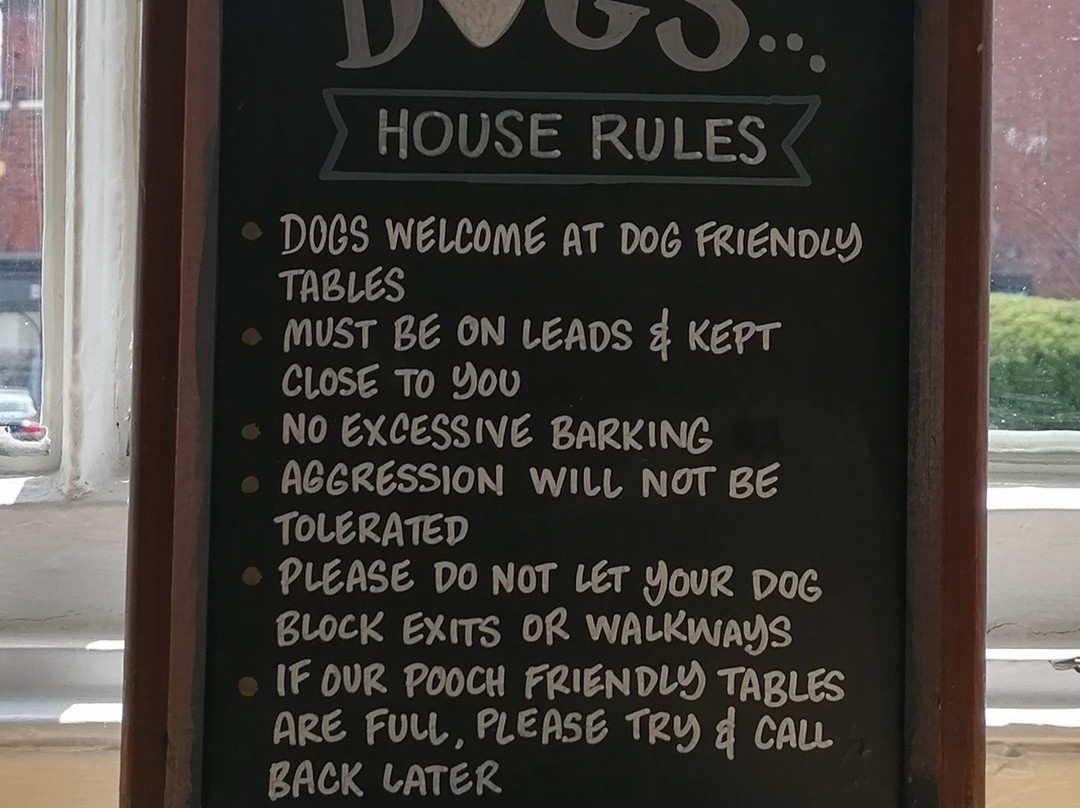 DOGS...
HOUSE RULES
• DOGS WELCOME AT DOG FRIENDLY
TABLES
• MUST BE ON LEADS & KEPT
CLOSE TO YOU
• NO EXCESSIVE BARKING
• AGGRESSION WILL NOT BE
TOLERATED
• PLEASE DO NOT LET YOUR DOG
BLOCK EXITS OR WALKWAYS
• IF OUR POOCH FRIENDLY TABLES
ARE FULL, PLEASE TRY & CALL
BACK LATER